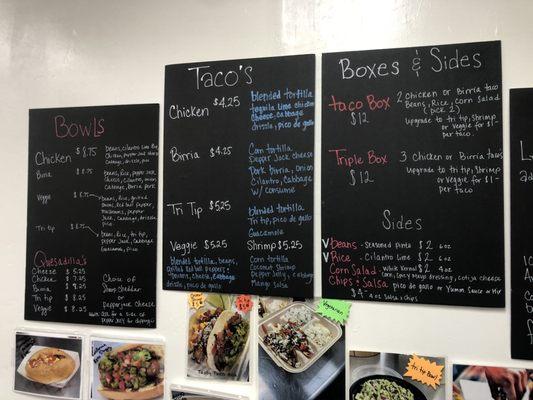 Bowls
Chicken $8.75
Beans, cilantro lime
Chicken, pepper jack cheese
Birria $8.75
Beans, Rice, pepper jack
Cheese, cilantro, onion
Cabbage, Birria pork
Veggie $8.75
Beans, Rice, grilled
cabbage
Tri Tip $8.75
Beans, Rice, tri tip,
pepper Jack, cabbage
Guacamole, pico
Quesadilla's
Cheese $5.25
Chicken $7.25
Birria $8.25
Tri Tip $8.25
Veggie $8.25
Choice of
Sharp cheddar
or
pepper jack cheese
Taco's
Chicken $4.25
blended tortilla
tequila lime chicken
Cheese, cabbage
drizzle, pico de gallo
Birria $4.25
Corn tortilla
Pepper Jack cheese
Pork Birria, Onion
Cilantro, Cabbage
w/ consume
Tri Tip $5.25
blended tortilla
Tri tip, pico de gallo
Guacamole
Veggie $5.25
blended tortilla, beans,
grilled Red bell peppers &
cheese, cabbage
Shrimp $5.25
Corn tortilla
Coconut Shrimp
Pepper Jack, cabbage
Mango salsa
Boxes & Sides
Taco Box
$12
2 Chicken or Birria taco
Beans, Rice, Corn Salad
(pick 2)
upgrade to tri tip, Shrimp
or Veggie for $1-
per taco.
Triple Box
$12
3 chicken or Birria tacos
Upgrade to tri tip, Shrimp
or Veggie for $1-
per taco
Sides
V Beans - Seasoned pinto $2 6oz
V Rice - Cilantro Lime $2 6oz
Corn Salad - White Kernel $2 4oz
Corn, Spicy Mayo dressing, cotija cheese
Chips & Salsa pico de gallo or
$4 - 4oz Salsa & chips
Veggie Bowl
Tri tip Bowl